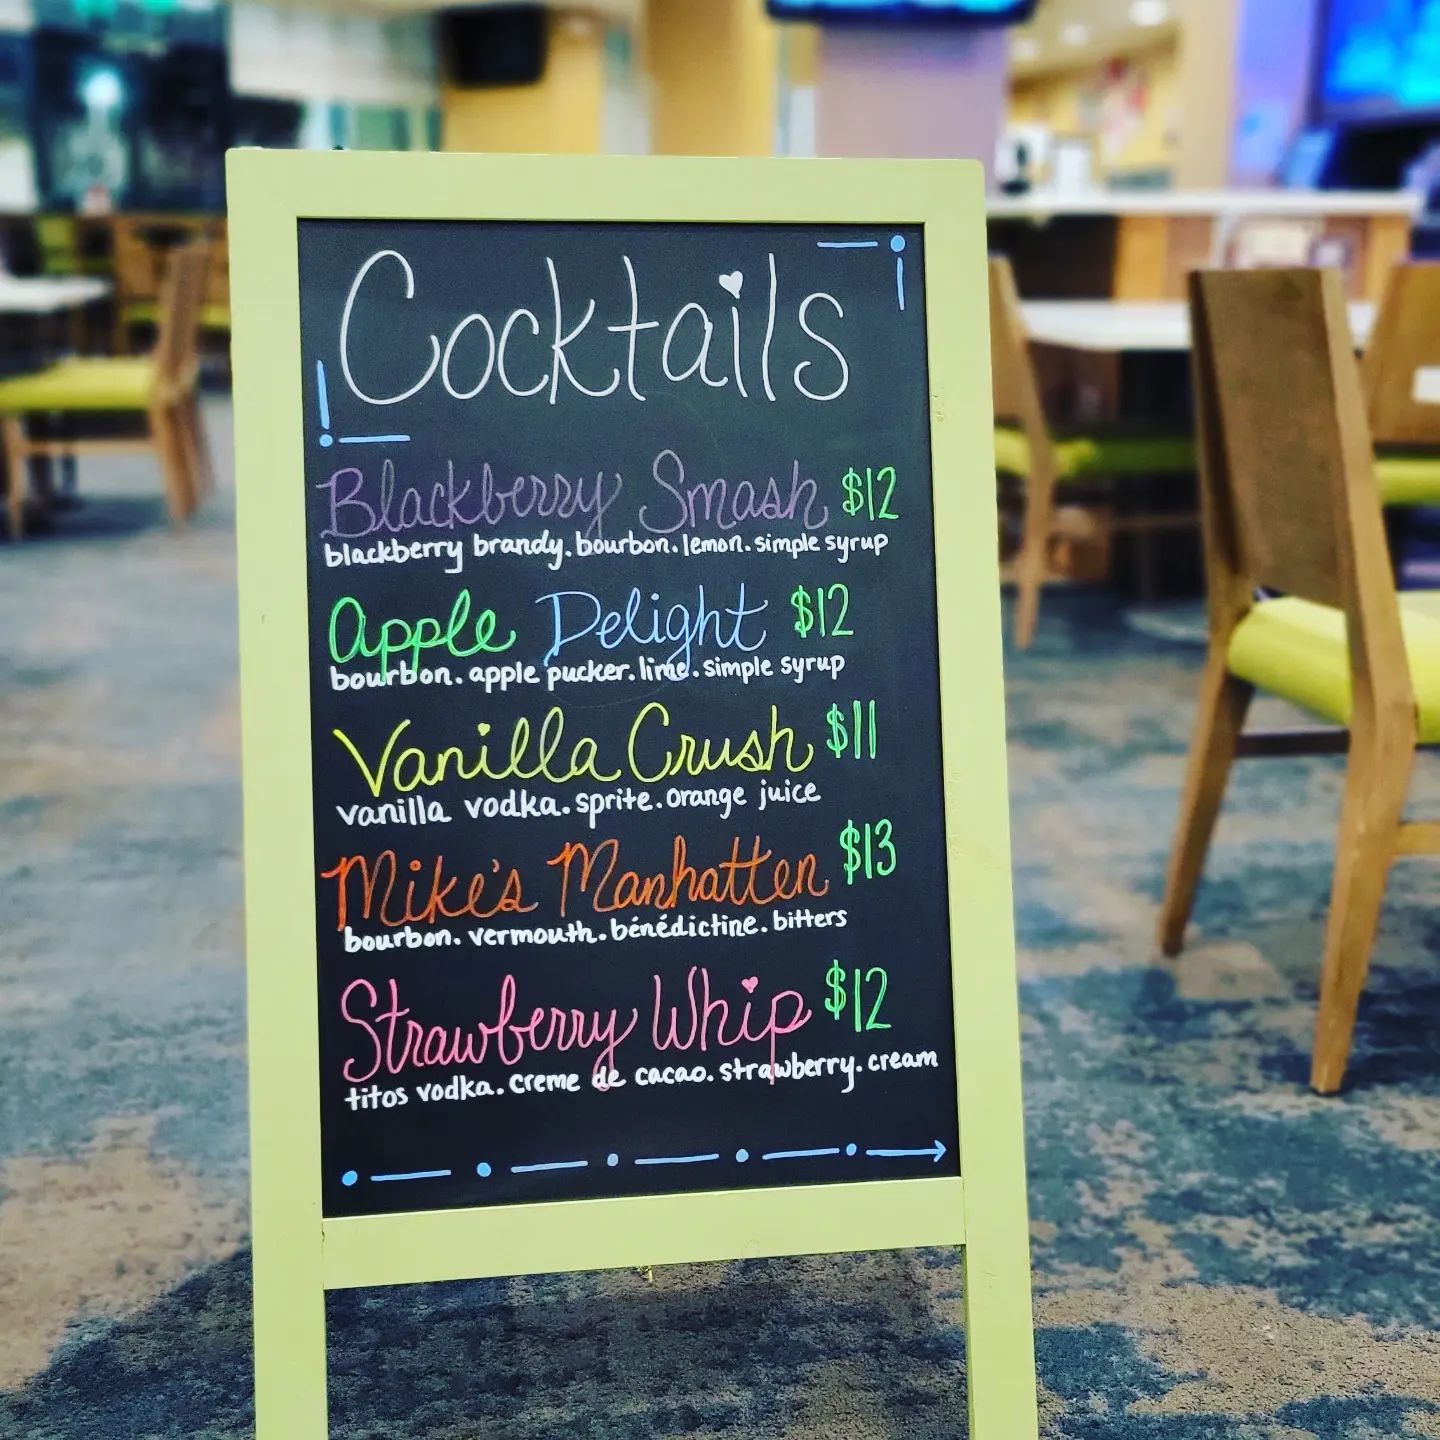 Cocktails
Blackberry Smash $12
blackberry brandy. bourbon. lemon. simple syrup
Apple Delight $12
bourbon. apple pucker. lime. simple syrup
Vanilla Crush $11
vanilla vodka. sprite. orange juice
Mike's Manhatten $13
bourbon. vermouth. bénédictine. bitters
Strawberry Whip $12
titos vodka. creme de cacao. strawberry. cream